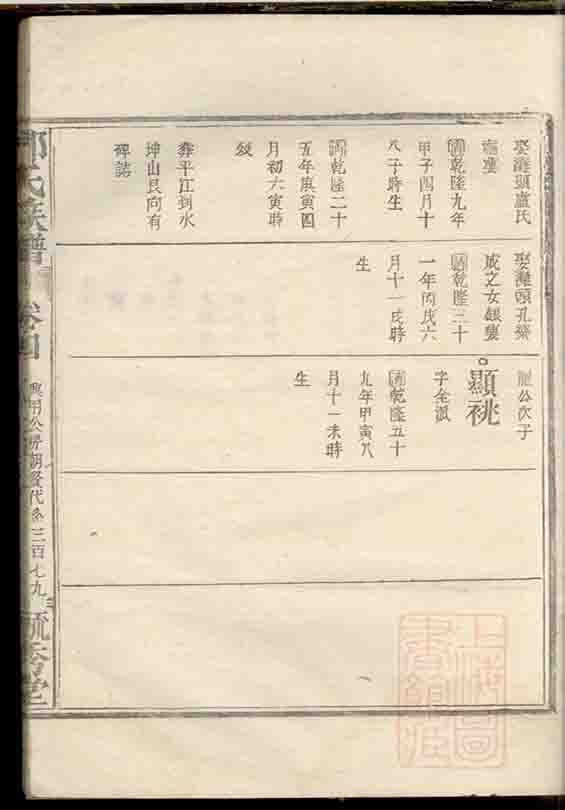 娶灘頭盧氏
清乾隆九年
甲子四月十
八子時生
清乾隆二十
五年庚寅四
月初六寅時
歿
葬平江到水
坤山艮向有
碑誌
娶灘頭孔榮
成之女
清乾隆三十
一年丙戌六
月十一戌時
生
公次子
顯祧
字全淑
清乾隆五十
九年甲寅八
月十一未時
生
氏族譜
卷四
三百七九
上海圖書館藏